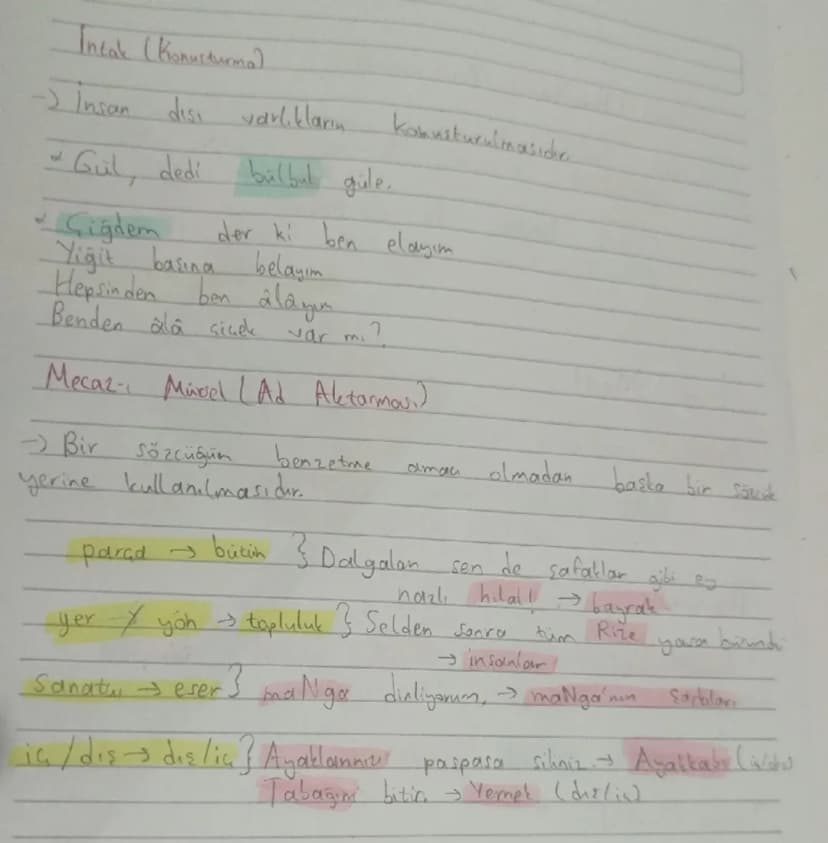 İntak (Konuşturma)
→ İnsan dışı varlıkların konuşturulmasıdır.
✓ Gül, dedi bülbül güle.
✓ Çiğdem der ki ben elayım
Yiğit başına belayım
Hepsinden ben âlâyım
Benden âlâ çiçek var mı?
Mecaz-ı Mürsel (Ad Aktarması)
→ Bir sözcüğün benzetme amacı olmadan başka bir sözcük
yerine kullanılmasıdır.
parça → bütün } Dalgalan sen de şafaklar gibi ey
nazlı hilal! → bayrak
yer - yön → topluluk } Selden sonra tüm Rize yasa büründü
→ insanlar
Sanatçı → eser } maNga dinliyorum, → maNga'nın şarkıları
iç/dış → dış/iç } Ayaklarınızı paspasa siliniz. → Ayakkabı (iç/dış)
Tabağını bitir. → Yemek (dış/iç)